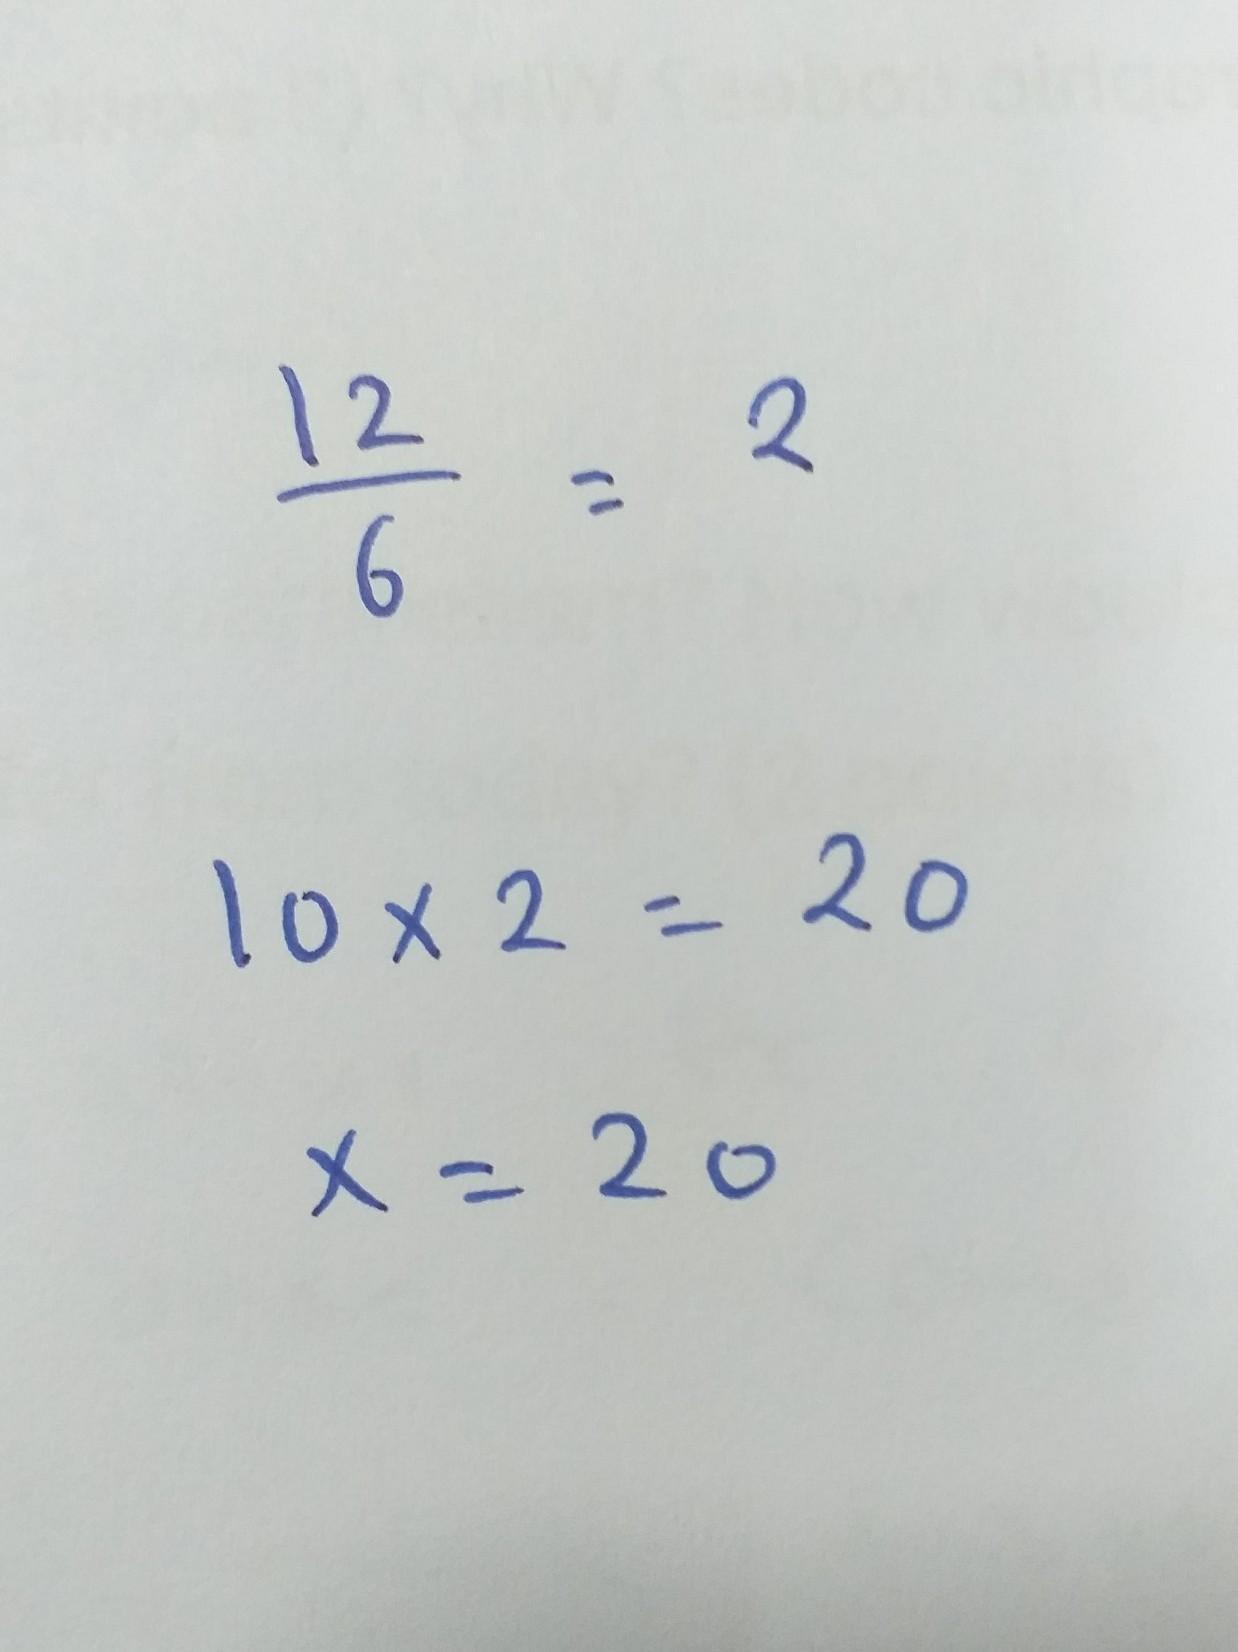 12/6 = 2
10 x 2 = 20
x = 20